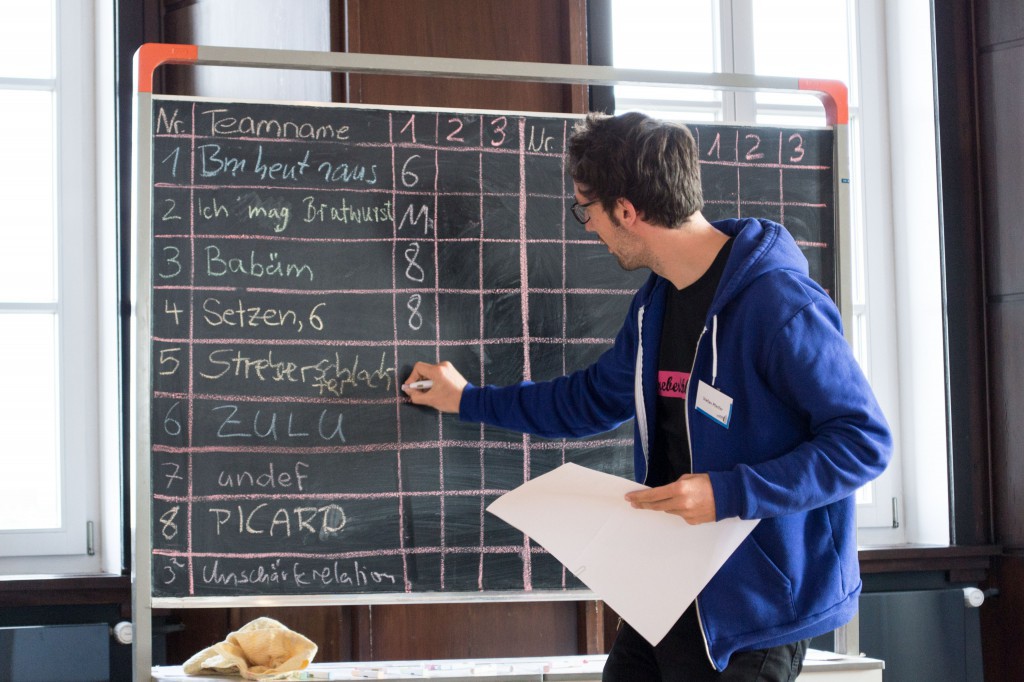 Nr. Teamname 1 2 3 Nr. 1 2 3
1 heut 6
2 Ich mag Bratwurst 11
3 Babäm 8
4 Setzen, 6 8
5
6 ZULU
7 undef
8 PICARD
3² Unschärferelation